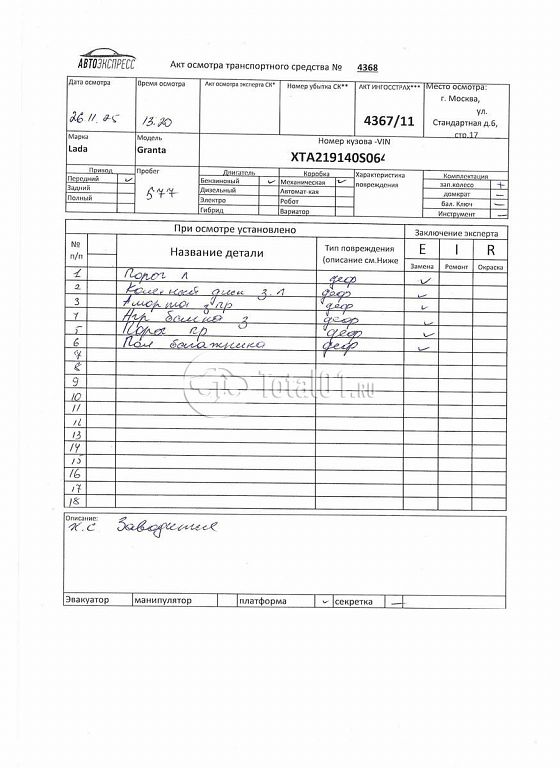 АВТОЭКСПРЕСС
Акт осмотра транспортного средства № 4368
Дата осмотра Время осмотра Акт осмотра эксперта СК* Номер убытка СК** АКТ ИНГОССТРАХ*** Место осмотра:
г. Москва,
ул.
26.11.25 13.20 4367/11 Стандартная д.6,
стр.17
Марка Модель Номер кузова -VIN
Lada Granta XTA219140S064
Привод Пробег Двигатель Коробка Характеристика Комплектация
Передний ✓ 577 Бензиновый ✓ Механическая ✓ повреждения зап.колесо +
Задний Дизельный Автомат-кая домкрат —
Полный Электро Робот бал. Ключ —
Гибрид Вариатор Инструмент —
При осмотре установлено Заключение эксперта
№ Название детали Тип повреждения E I R
п/п (описание см.Ниже Замена Ремонт Окраска
1 Порог л деф ✓
2 Колесный диск з.л деф ✓
3 Аморт з пр деф ✓
балка з деф ✓
5 Порог пр деф ✓
6 Пол багажника деф ✓
7
8
9
Total01.RU
10
11
12
13
14
15
16
17
18
Описание:
х.с Заводится
Эвакуатор манипулятор платформа ✓ секретка —